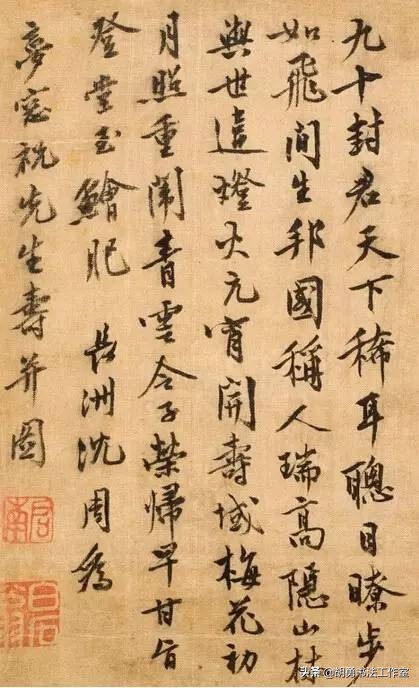 九十封君天下稀耳聰目瞭步
如飛間生邦國稱人瑞高隱山林
與世違燈火元宵開壽域梅花初
月照重闈青雲令子榮歸早甘旨
登堂玉鱠肥 長洲沈周為
夢窓祝先生壽并圖
啟南
白石翁
头条 @胡勇书法工作室